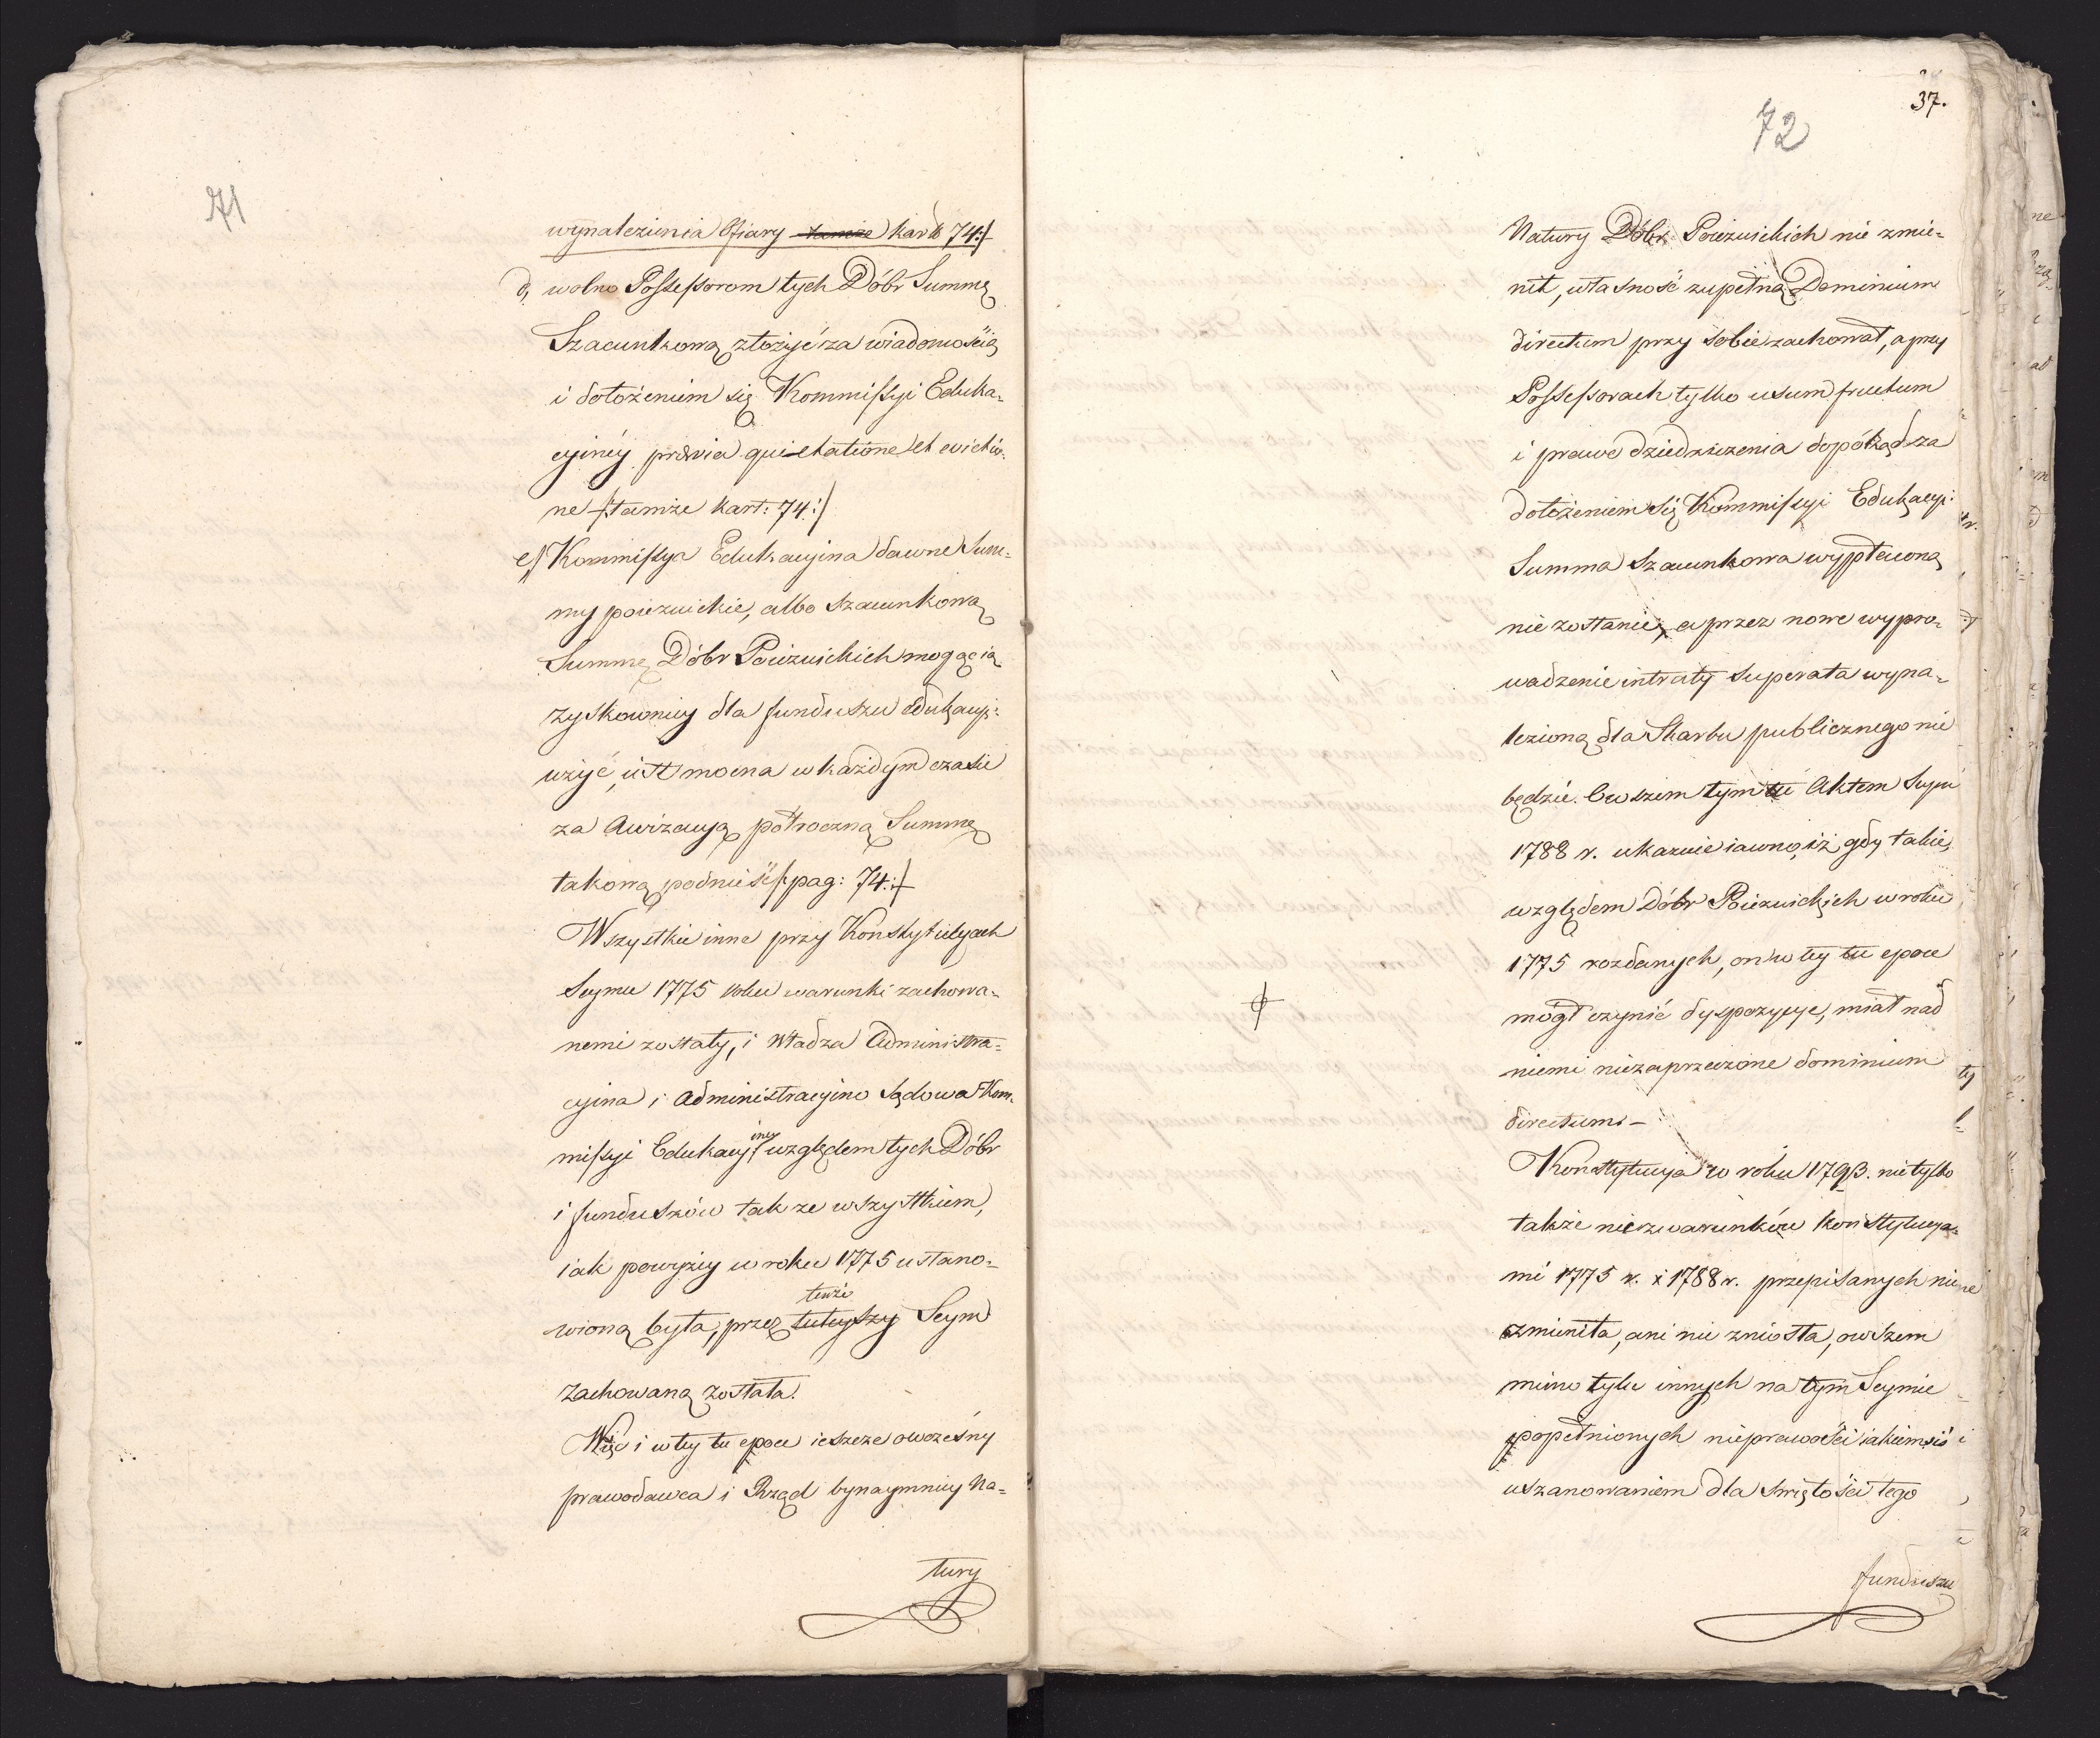 71
wynalezienia Ofiary tamże kart: 74:/
d, wolno Possessorom tych Dóbr Summę
Szacunkową złożyć za wiadomością
i dołożeniem się Kommissyi Eduka-
cyiney prævia quietatione et evictio-
ne /:tamże kart: 74:/
e/ Kommissya Edukacyina dawne Sum-
my poiezuickie, albo szacunkową
Summę Dóbr Poiezuickich mogąc ią
zyskowniey dla funduszu Edukacyi:
użyć, iest mocna w każdym czasie
za Awizacyą półroczną Summę
takową podnieść /:pag: 74:/
Wszystkie inne przy Konstytucyach
Seymu 1775 roku warunki zachowa-
nemi zostały, i Władza Administra-
cyina i Administracyino Sądowa Kom-
missyi Edukacyiney względem tych Dóbr
i funduszów tak ze wszystkiem,
iak powyżey w roku 1775 ustano-
wioną była, przez tuteyszy tenże Seym
zachowaną została.
Więc i w tey tu epoce ieszcze owczesny
prawodawca i Rząd bynaymniey Na-
tury
37.
72
Natury Dóbr Poiezuickich nie zmie-
nił, własność zupełną Dominium
directum przy sobie zachował, a przy
Possessorach tylko usum fructum
i prawo dziedziczenia dopókąd za
dołożeniem się Kommissyi Edukacyi:
Summa Szacunkowa wypłaconą
nie zostanie, a przez nowe wypro-
wadzenie intraty superata wyna-
lezioną dla Skarbu publicznego nie
będzie. Owszem tym tu Aktem Seym
1788 r. ukazuie iawno, iż gdy takie,
względem Dóbr Poiezuickich w roku
1775 rozdanych, on w tey tu epoce
mógł czynić dyspozycye, miał nad
niemi niezaprzeczone dominium
directum.–
Konstytucya w roku 1793. nie tylko
także nic z warunków Konstytucya-
mi 1775 r. i 1788 r. przepisanych nie
zmieniła, ani nie zniosła, owszem
mimo tylu innych na tym Seymie
popełnionych nieprawości iakiemsiś
uszanowaniem dla świętości tego
funduszu